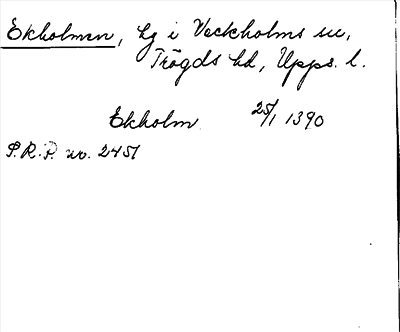 Ekholmen, hg i Veckholms sn,
Trögds hd, Upps. l.
Ekholm 25/1 1390
S.R.P. no. 2451